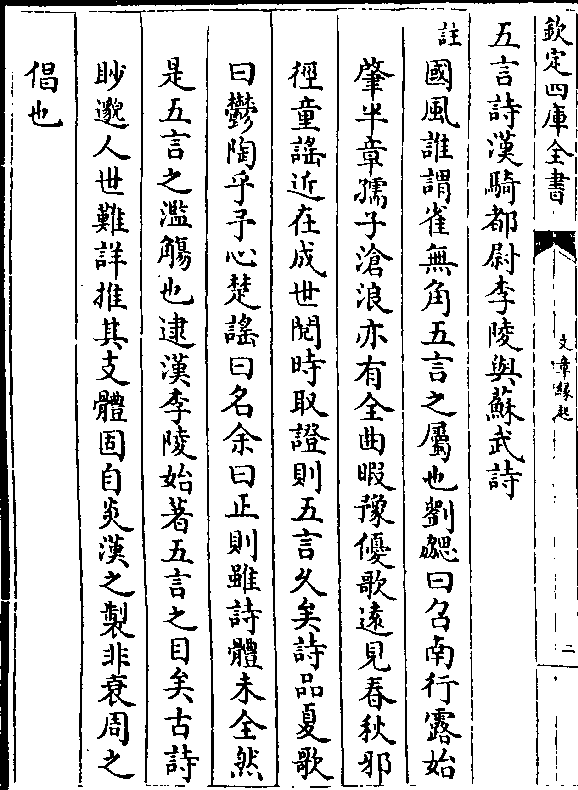 欽定四庫全書
文章縁起
二
五言詩漢騎都尉李陵與蘇武詩
註國風誰謂雀無角五言之屬也劉勰曰召南行露始
肇半章孺子滄浪亦有全曲暇豫優歌遠見春秋邪
徑童謠近在成世閱時取證則五言久矣詩品夏歌
曰鬱陶乎予心楚謠曰名余曰正則雖詩體未全然
是五言之濫觴也逮漢李陵始著五言之目矣古詩
眇邈人世難詳推其支體固自炎漢之製非衰周之
倡也